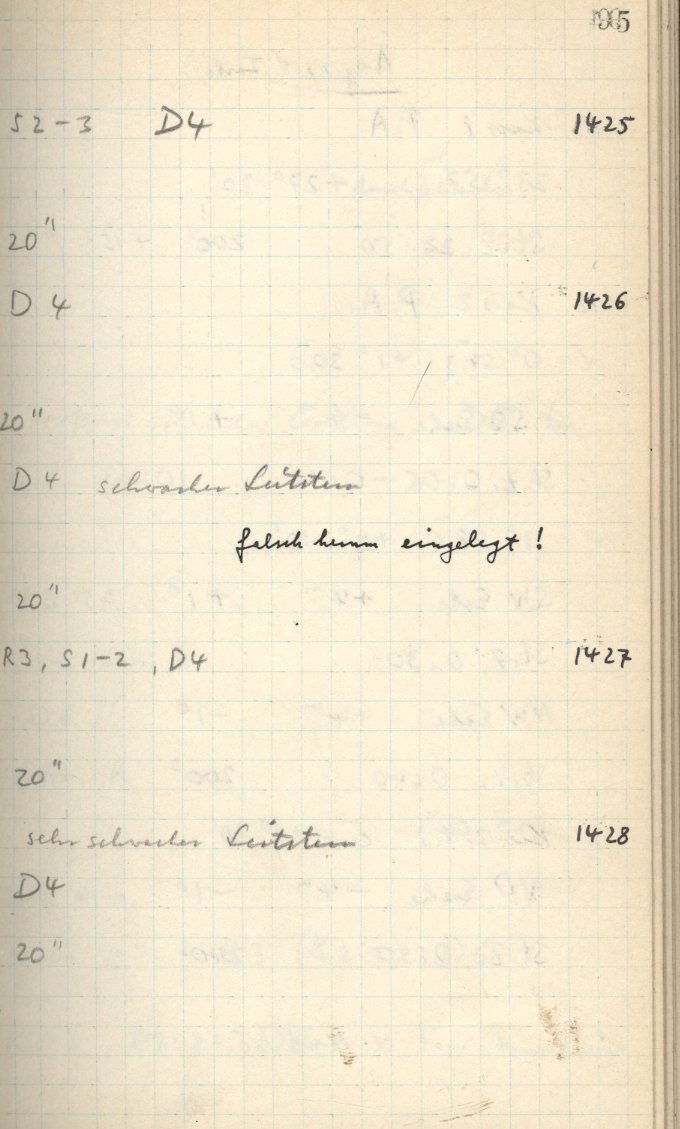 95
S2-3 D4 1425
20"
D 4 1426
20"
D 4 schwacher Leitstern
falsch herum eingelegt!
20"
R3, S1-2, D4 1427
20"
sehr schwacher Leitstern 1428
D4
20"